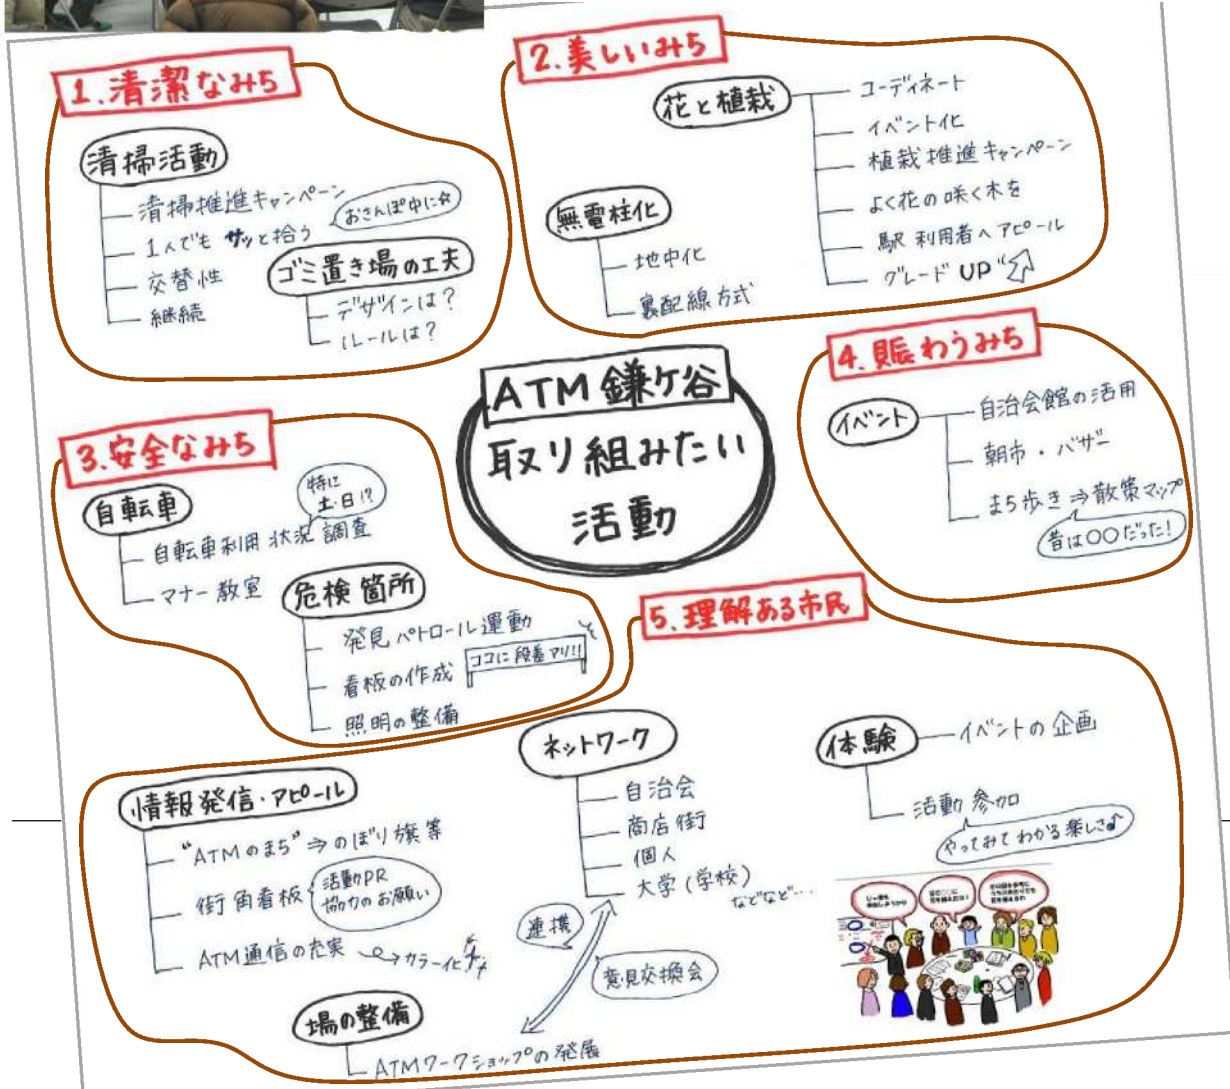 1.清潔なみち
清掃活動
清掃推進キャンペーン
おさんぽ中に☆
1人でも サッと拾う
交替性
継続
ゴミ置き場の工夫
デザインは?
ルールは?
2.美しいみち
花と植栽
コーディネート
イベント化
植栽推進キャンペーン
よく花の咲く木を
駅利用者へアピール
グレードUP
無電柱化
地中化
裏配線方式
ATM鎌ケ谷
取り組みたい
活動
3.安全なみち
自転車
特に
土・日!?
自転車利用状況調査
マナー教室
危検箇所
発見パトロール運動
看板の作成
ココに段差アリ!!
照明の整備
4.賑わうみち
イベント
自治会館の活用
朝市・バザー
まち歩き⇒散策マップ
昔は〇〇だった!
5.理解ある市民
情報発信・アピール
"ATMのまち"⇒のぼり旗等
街角看板
活動PR
協力のお願い
ATM通信の充実→カラー化
ネットワーク
自治会
商店街
個人
大学(学校)
などなど…
連携
意見交換会
場の整備
ATMワークショップの発展
体験
イベントの企画
活動参加
やってみてわかる楽しさ♪